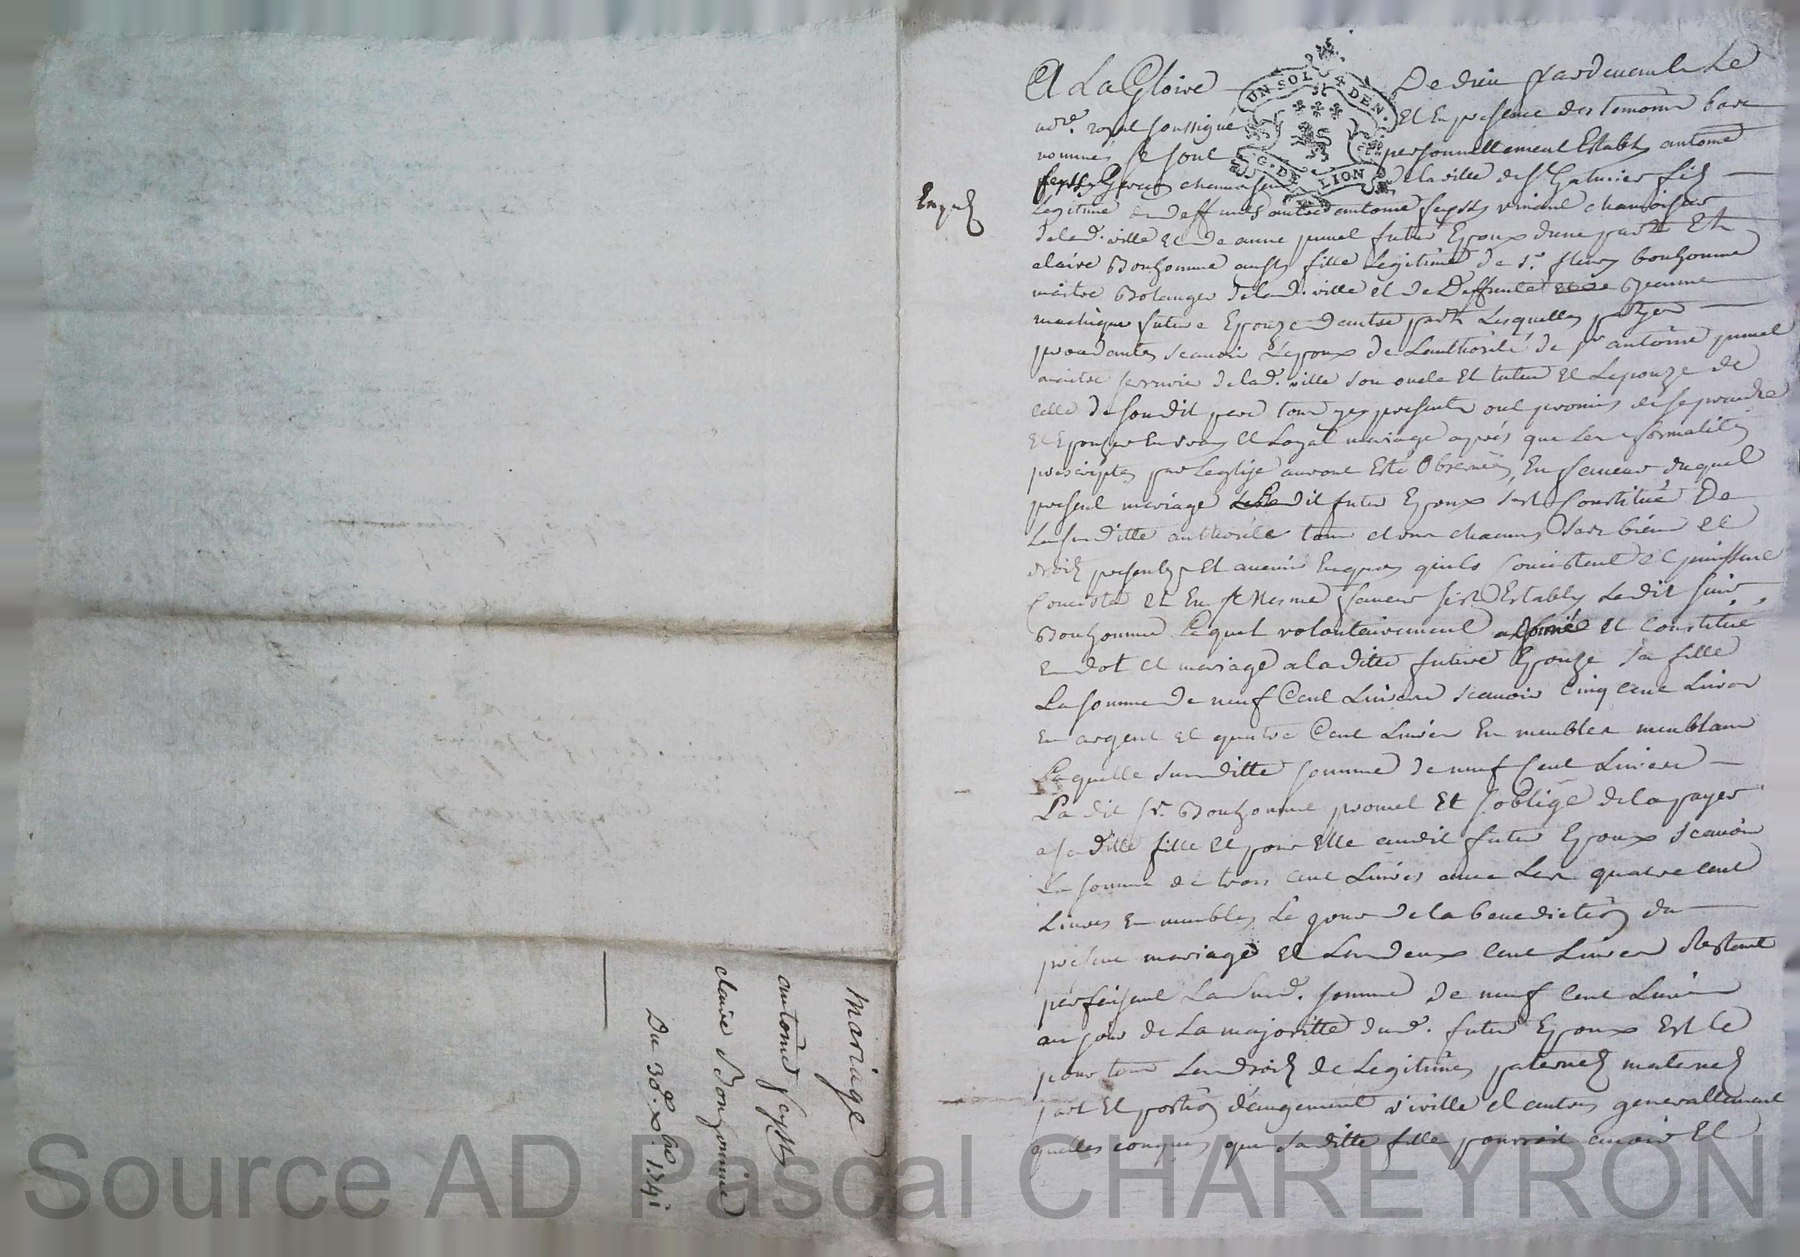 mariage
antoine feyss
claire Bonhomme
Du 30e. xbre 1741
Enqel
A La Gloire De dieu pardevant Le
nore. royal soussigné Et En presence des temoins bas
nommés se sont personnellement Establis antoine
chamoiseur de la ville de st Galmier fils
Legitime de deffunts autre antoine feyss vivant chamoiseur
de lad. ville et de anne junel futur Epoux dune part Et
claire Bonhomme aussy fille Legitime de sr. fleury bonhomme
maitre Bolanger de lad. ville et de Deffunte Jeanne
future Epouze dautre part Lesquelles partyes
procedantes scavoir L'epoux de Lauthorité de sr antoine junel
maitre serrurier de lad. ville son oncle Et tuteur et Lepouze de
celle de son dit pere tous presents ont promis de se prendre
et Epouzer en vray et Loyal mariage aprés que Les formalités
prescriptes par Leglise auront Esté Observées, En faveur duquel
present mariage Ledit futur Epoux s'est Constitué De
La susditte authorité tous et uns chacuns ses biens et
droits presents Et avenir Enquoy quils Consistent et puissent
Consister et En Mesme faveur s'est Estably Ledit sieur
Bonhomme Lequel volontairement a donné et Constitué
en dot et mariage a la ditte future Epouze sa fille
La somme de neuf Cent Livres scavoir Cinq cent Livres
en argent et quatre Cent Livres En meubles meublans
Laquelle susditte somme de neuf Cent Livres
Le dit sr. Bonhomme promet Et s'oblige de la payer
a sa ditte fille et pour Elle audit futur Epoux scavoir
La somme de trois cent Livres avec Les quatre cent
Livres en meubles Le jour de la benediction du
present mariage et Les deux cent Livres Restant
perfaisent La sud. somme de neuf cent Livres
au jour de La majoritté dud. futur Epoux Est ce
pour tous Les droits de Legitimes paternels maternels
part Et portion d'augement et autres generallement
quelles conques que sa ditte fille pourroit avoir Et
UN SOL 4 DEN.
G. DE LION
Source AD Pascal CHAREYRON